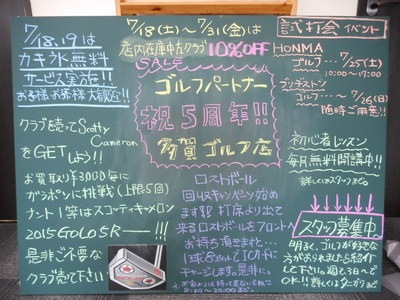 7/18.19は
カキ氷無料
サービス実施!!
お子様、お客様大歓迎!!
クラブ売ってScotty
Cameron
をGETしよう!!
お買取り¥3000毎に
ガラポンに挑戦(上限5回)
ナント!等はスコーティキャメロン
2015 GOLO 5R ー!!!
是非ご不要な
クラブ売って下さい
7/18(土)〜7/31(金)は
店内在庫中古クラブ10%OFF
SALE
ゴルフパートナー
祝5周年!!
多賀ゴルフ店
ロストボール
回収キャンペーン始め
ます 打席より出て
来るロストボールをフロントへ
お持ち頂きますと...
チャージします。是非に。
8:30〜20:00まで。
試打会イベント
HONMA
ゴルフ...7/25(土)
10:00〜17:00
ブリヂストン
ゴルフ...〜7/26(日)
随時ご用意!!
初心者レッスン
毎月無料開講中!!
詳しくはスタッフまで
スタッフ募集中
明るく、ゴルフが好きな
方がおられましたら紹介
して下さい。週1、3日〜で
OK!!